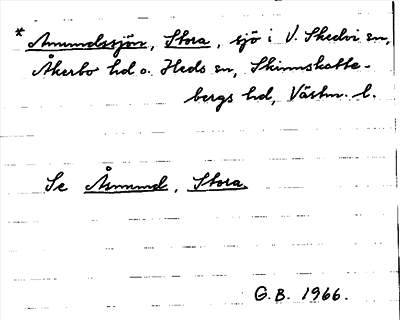 * Amundssjön, Stora, sjö i V. Skedvi sn,
Åkerbo hd o. Heds sn, Skinnskatte-
bergs hd, Västm. l.
Se Åmund, Stora.
G.B. 1966.